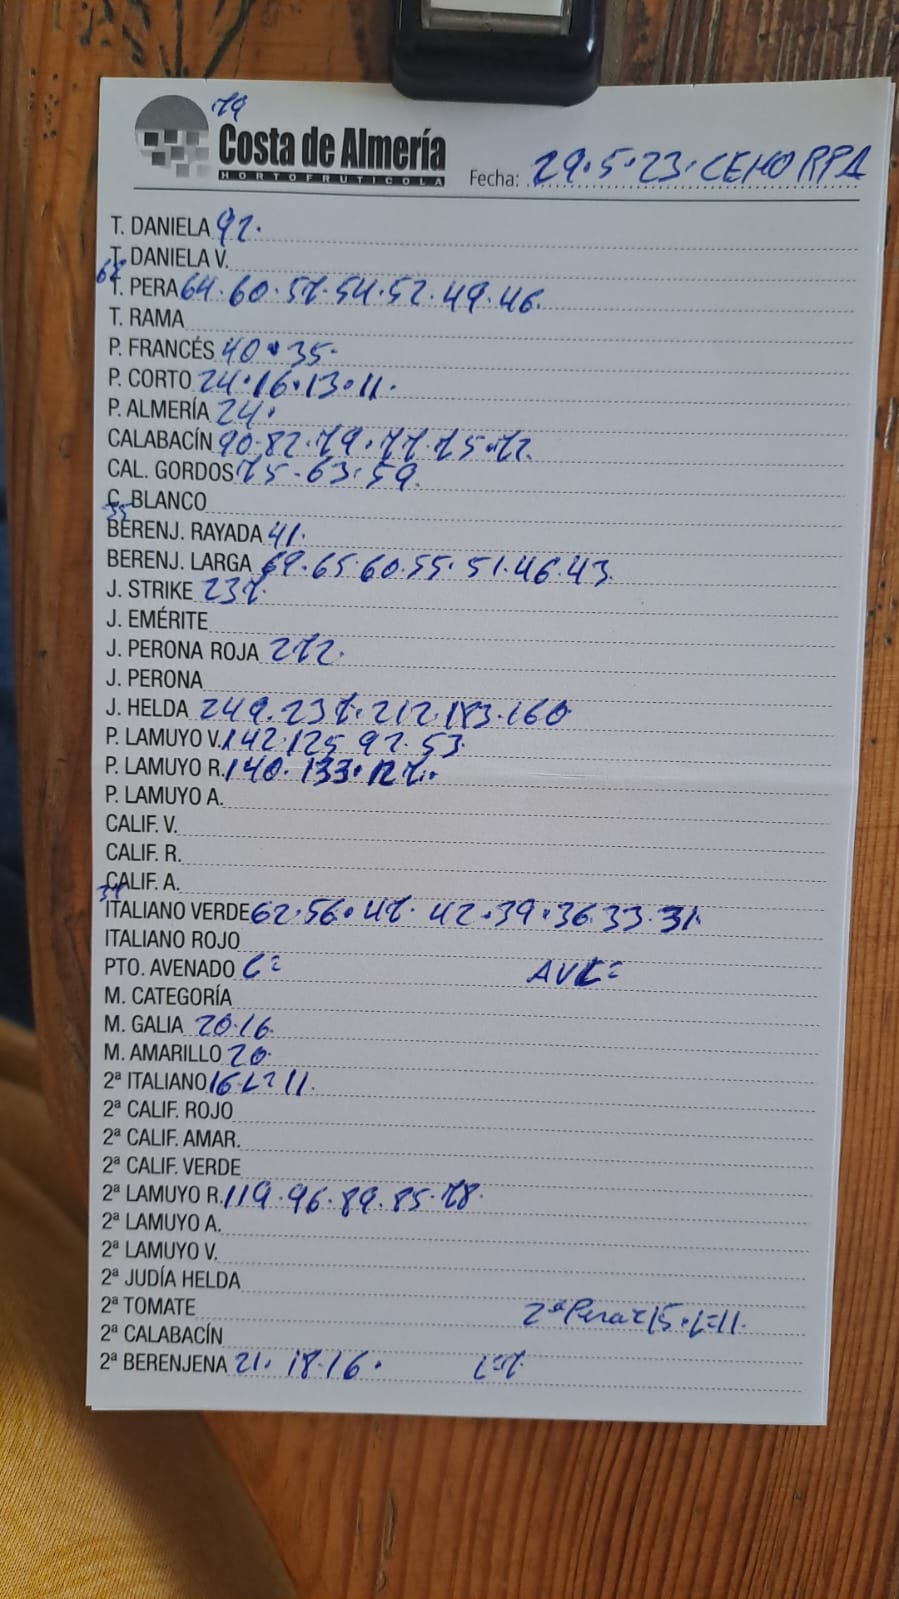 79
Costa de Almería
HORTOFRUTICOLA
Fecha: 29.5.23. CEHORPA
T. DANIELA 92.
T. DANIELA V.
68
T. PERA 64.60.57.54.52.49.46.
T. RAMA
P. FRANCÉS 40.35.
P. CORTO 24.16.13.11.
P. ALMERÍA 24.
CALABACÍN 90.82.79.77.75.72.
CAL. GORDOS 75.63.59.
C. BLANCO
35
BERENJ. RAYADA 41.
BERENJ. LARGA 69.65.60.55.51.46.43.
J. STRIKE 237.
J. EMÉRITE
J. PERONA ROJA 272.
J. PERONA
J. HELDA 249.237.212.183.160
P. LAMUYO V. 142.125.92.53.
P. LAMUYO R. 140.133.127.
P. LAMUYO A.
CALIF. V.
CALIF. R.
CALIF. A.
ITALIANO VERDE 62.56.47.42.39.36.33.31.
ITALIANO ROJO
PTO. AVENADO
M. CATEGORÍA
M. GALIA 20.16.
M. AMARILLO 20.
2ª ITALIANO 16.L=11.
2ª CALIF. ROJO
2ª CALIF. AMAR.
2ª CALIF. VERDE
2ª LAMUYO R. 119.96.89.85.78.
2ª LAMUYO A.
2ª LAMUYO V.
2ª JUDÍA HELDA
2ª TOMATE 2ª Pera=15.L=11.
2ª CALABACÍN
2ª BERENJENA 21.18.16. L=7.